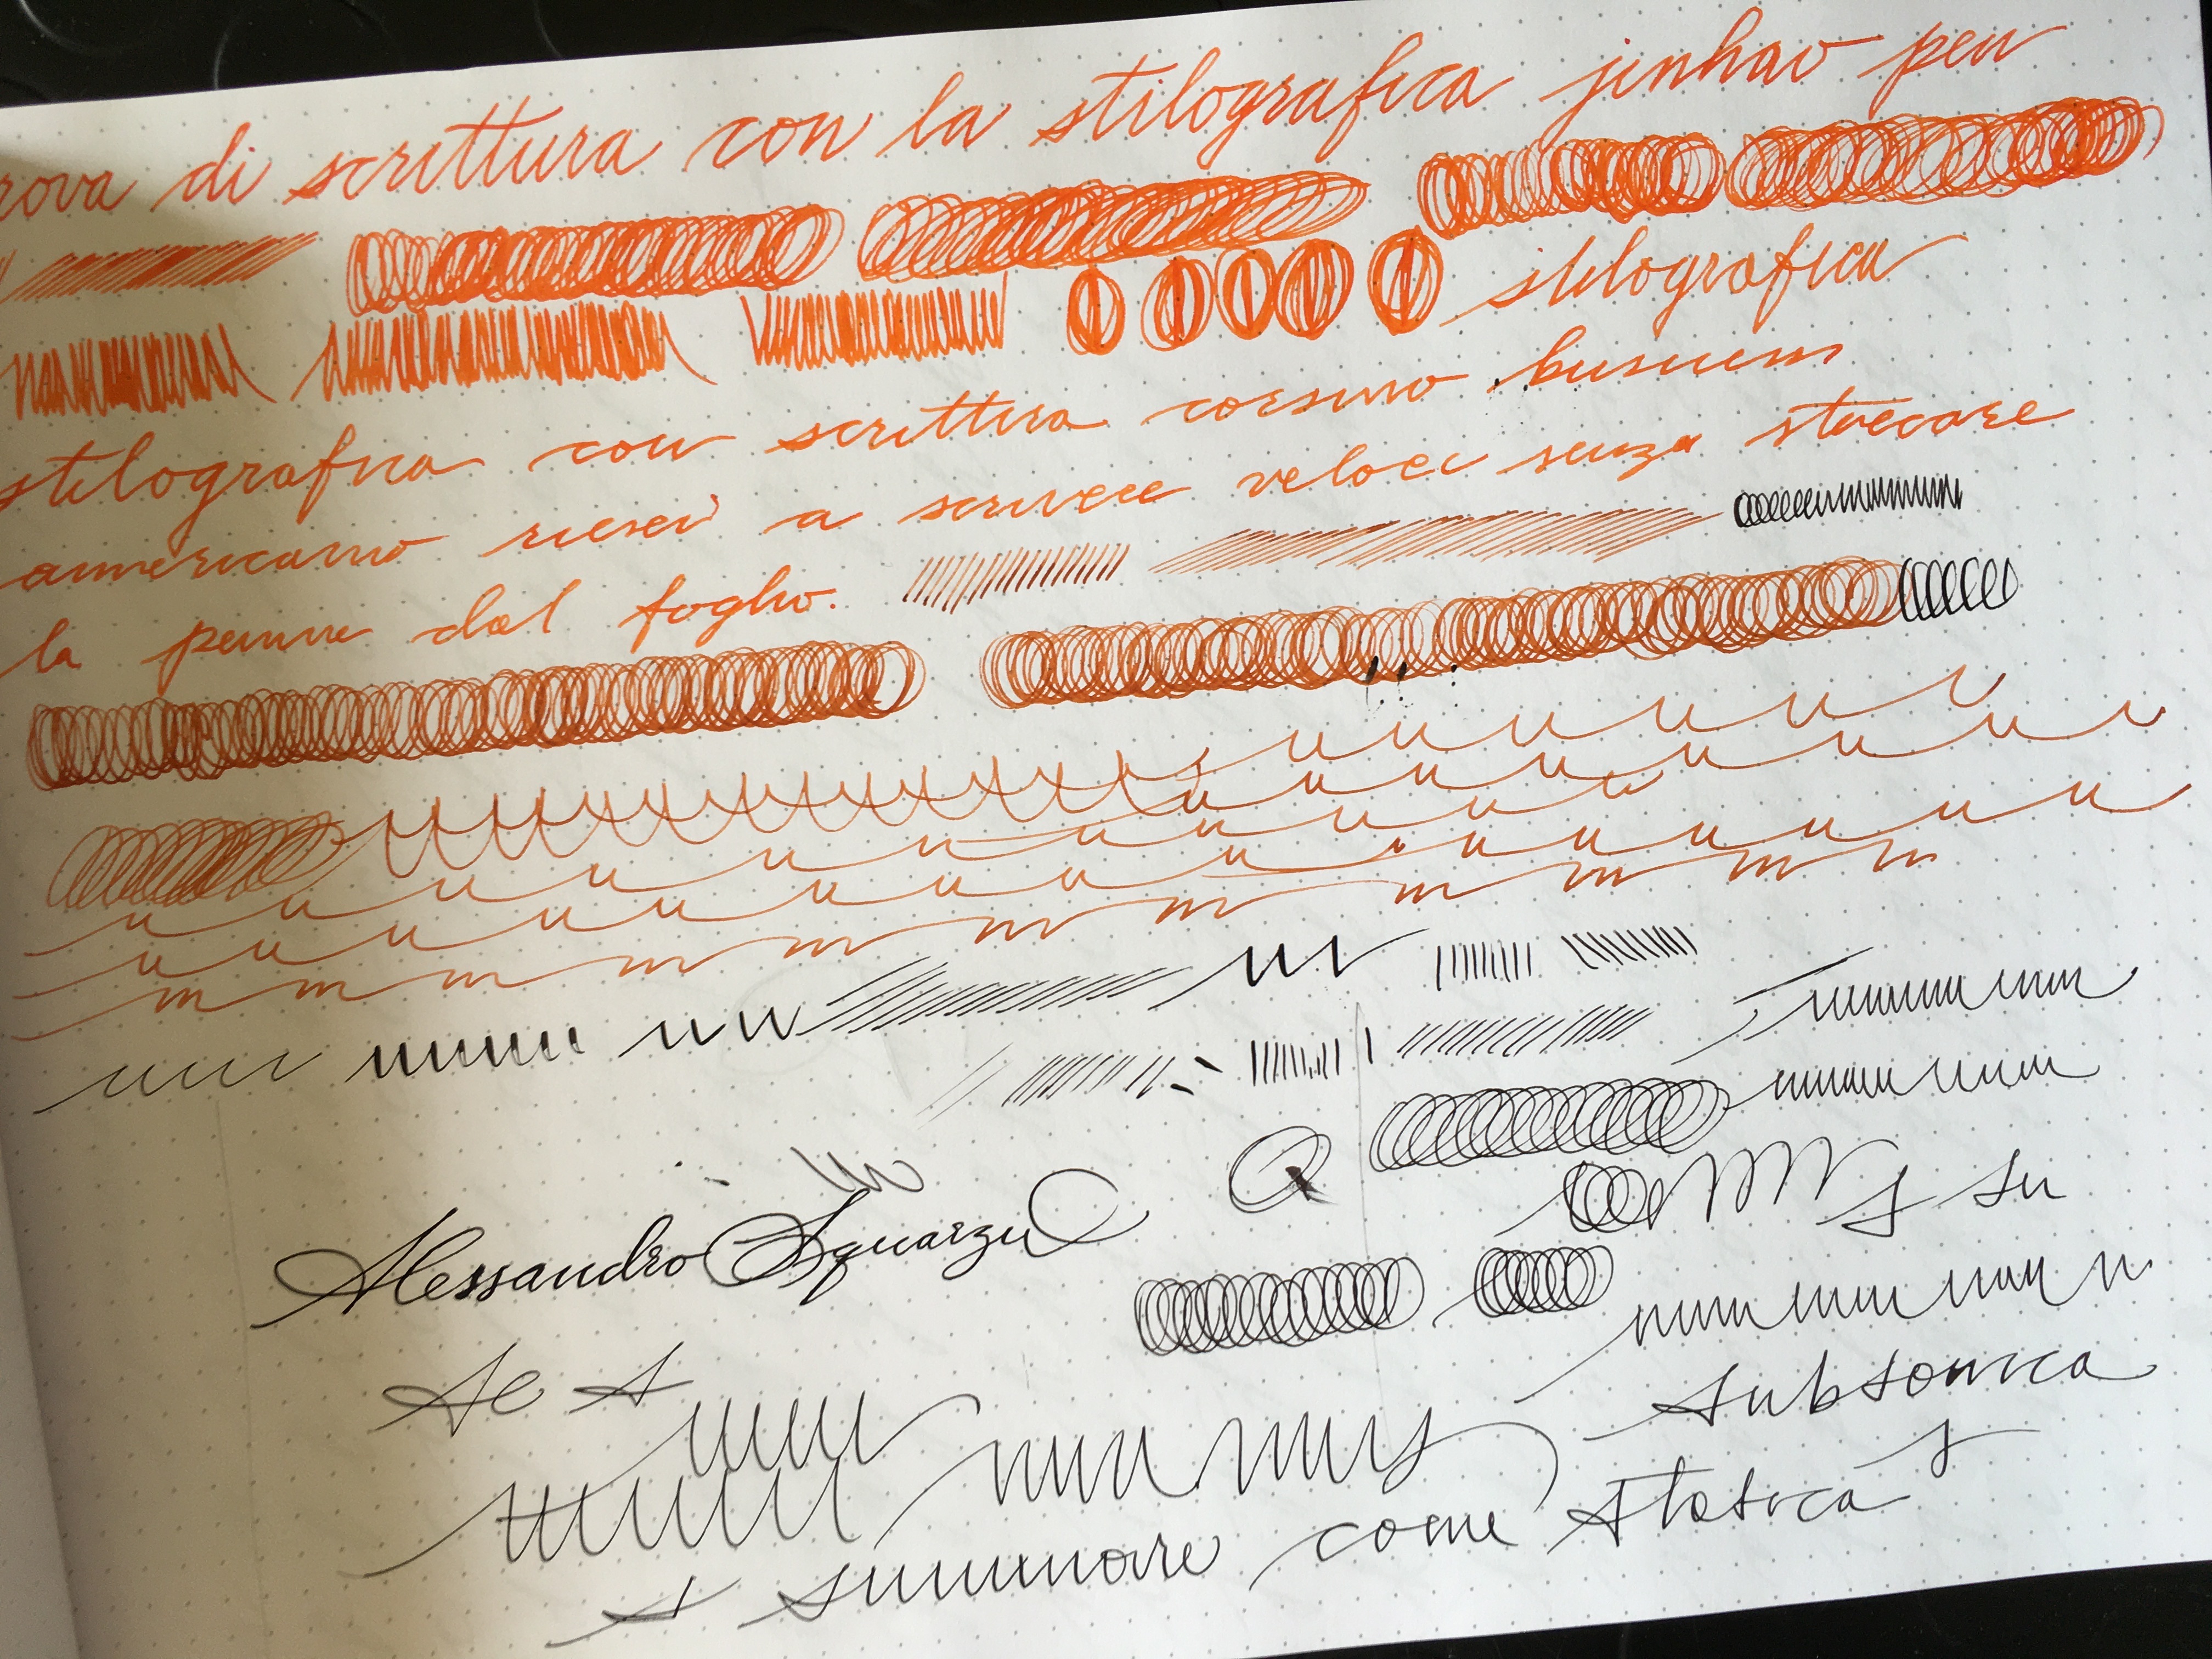 rova di scrittura con la stilografica jinhao pen
stilografica
stilografica con scrittura corsivo business
americano riesci a scrivere veloci senza staccare
la penna dal foglio.
Alessandro
su
subsonica
come